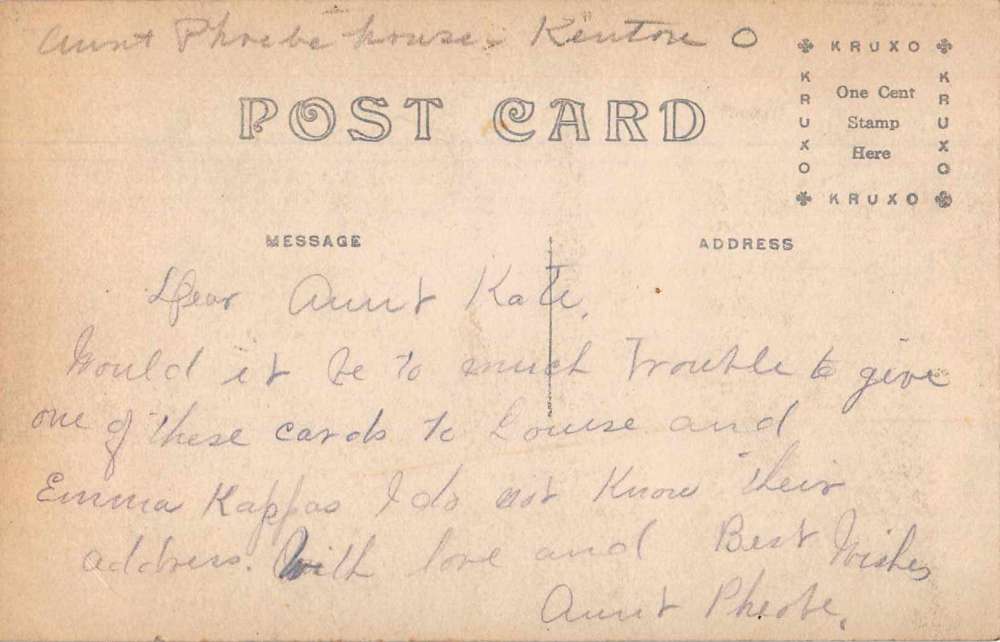 Aunt Phoebe house. Kenton O
POST CARD
KRUXO
KRUXO
One Cent
Stamp
Here
KRUXO
KRUXO
MESSAGE
ADDRESS
Dear Aunt Kate,
Would it be to much Trouble to give
one of these cards to Louise and
Emma Kappas I do not Know their
address. With love and Best Wishes
Aunt Pheobe.